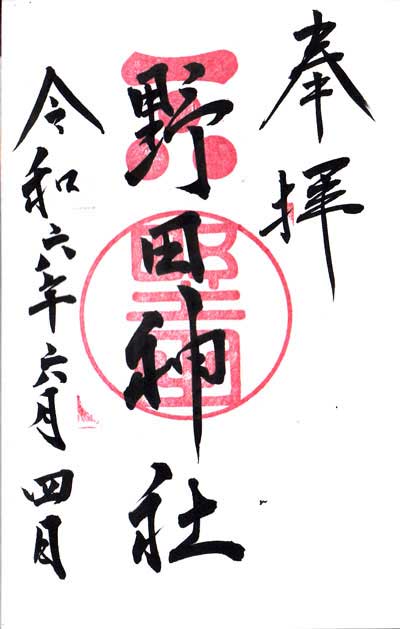 奉拝
野田神社
令和六年六月四日